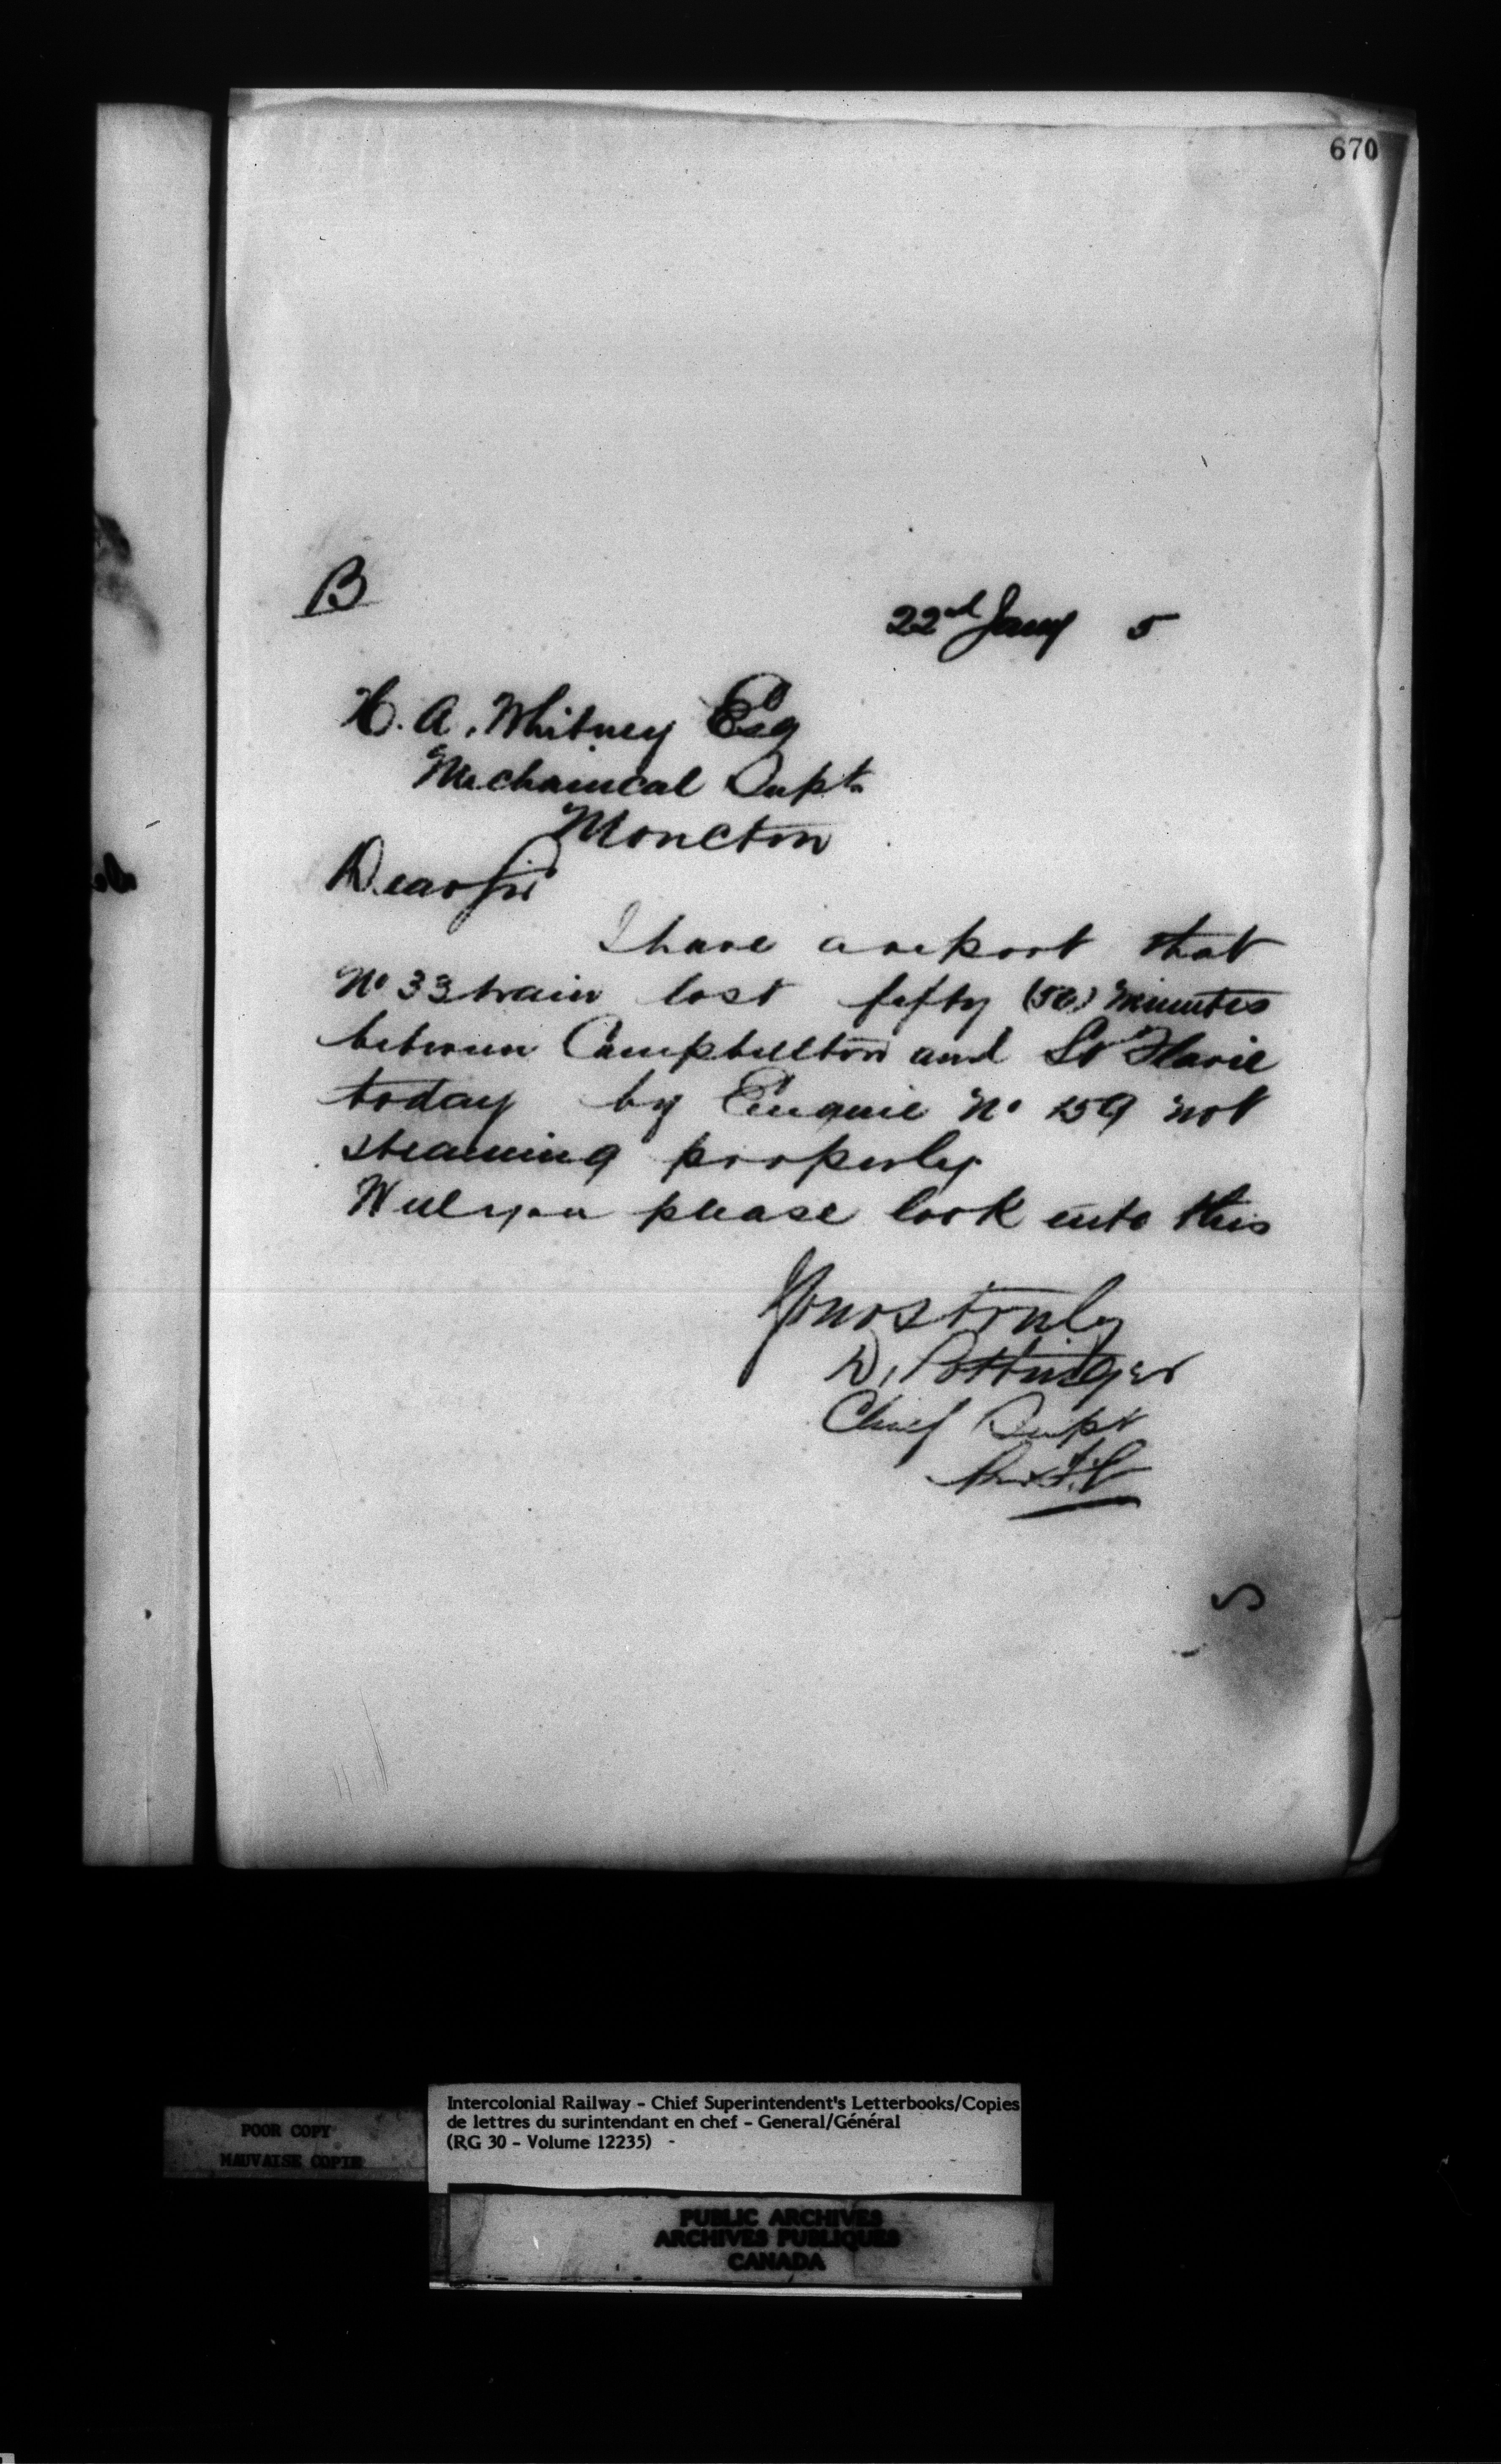 670
B
22nd Jany 5
H. A. Whitney Esq
Mechanical Supt.
Moncton
Dear Sir
I have a report that
No 33 train lost fifty (50) minutes
between Campbellton and St Flavie
today by Engine No 159 not
steaming properly
Will you please look into this
Yours truly
D. Pottinger
Chief Supt
POOR COPY
MAUVAISE COPIE
Intercolonial Railway - Chief Superintendent's Letterbooks/Copies
de lettres du surintendant en chef - General/Général
(RG 30 - Volume 12235) -
PUBLIC ARCHIVES
ARCHIVES PUBLIQUES
CANADA